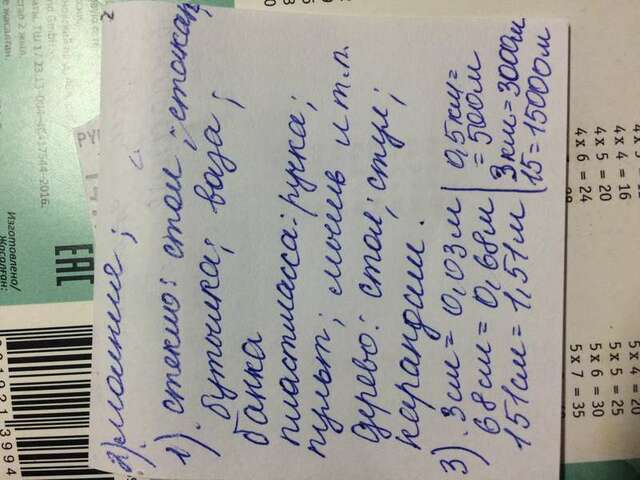 Изготовлено/
Жасалған:
EAC
2) молния ;
2
1) стекло: стол ; стакан,
бутылка; ваза ;
банка
пластмасса: ручка;
пульт; мышь и т.п.
дерево: стол; стул;
карандаш.
3) 3см = 0,03м
68см = 0,68м
151см = 1,51м
0,5км =
= 500м
3км = 3000м
15 = 15000м
5 x 7 = 35
5 x 6 = 30
5 x 5 = 25
5 x 4 = 20
4 x 6 = 24
4 x 5 = 20
4 x 4 = 16